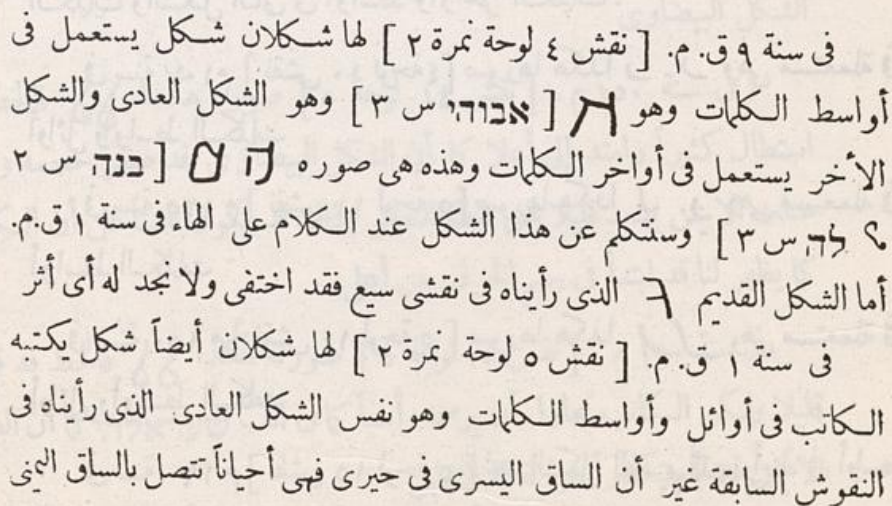 فى سنة ٩ ق. م. [ نقش ٤ لوحة نمرة ٢ ] لها شكلان شكل يستعمل فى
أواسط الكلمات وهو [ אבוהי س ٣ ] وهو الشكل العادى والشكل
الأخر يستعمل فى أواخر الكلمات وهذه هى صوره [ בנה س ٢
؟ לה س ٣ ] وسنتكلم عن هذا الشكل عند الكلام على الهاء فى سنة ١ ق.م.
أما الشكل القديم الذى رأيناه فى نقشى سيع فقد اختفى ولا نجد له أى أثر
فى سنة ١ ق. م. [ نقش ٥ لوحة نمرة ٢ ] لها شكلان أيضاً شكل يكتبه
الكاتب فى أوائل وأواسط الكلمات وهو نفس الشكل العادى الذى رأيناه فى
النقوش السابقة غير أن الساق اليسرى فى حيرى فهى أحياناً تتصل بالساق اليمنى